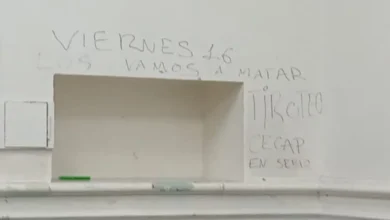 VIERNES 16
LOS VAMOS A MATAR
TIROTEO
EN SERIO